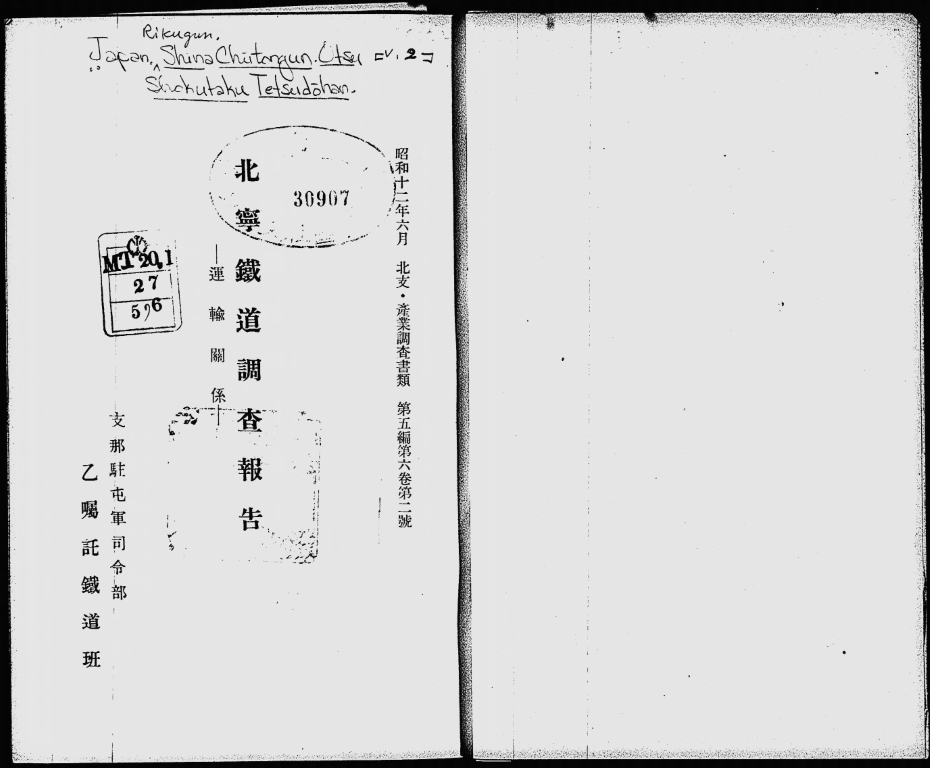 Rikugun.
Japan, Shina Chūtongun. Otsu [v. 2]
Shokutaku Tetsudōhan.
昭和十二年六月 北支・產業調査書類 第五編第六卷第二號
30907
北寧鐵道調査報吿
—運輸關係—
MT 20.1
27
5)6
支那駐屯軍司令部
乙囑託鐵道班